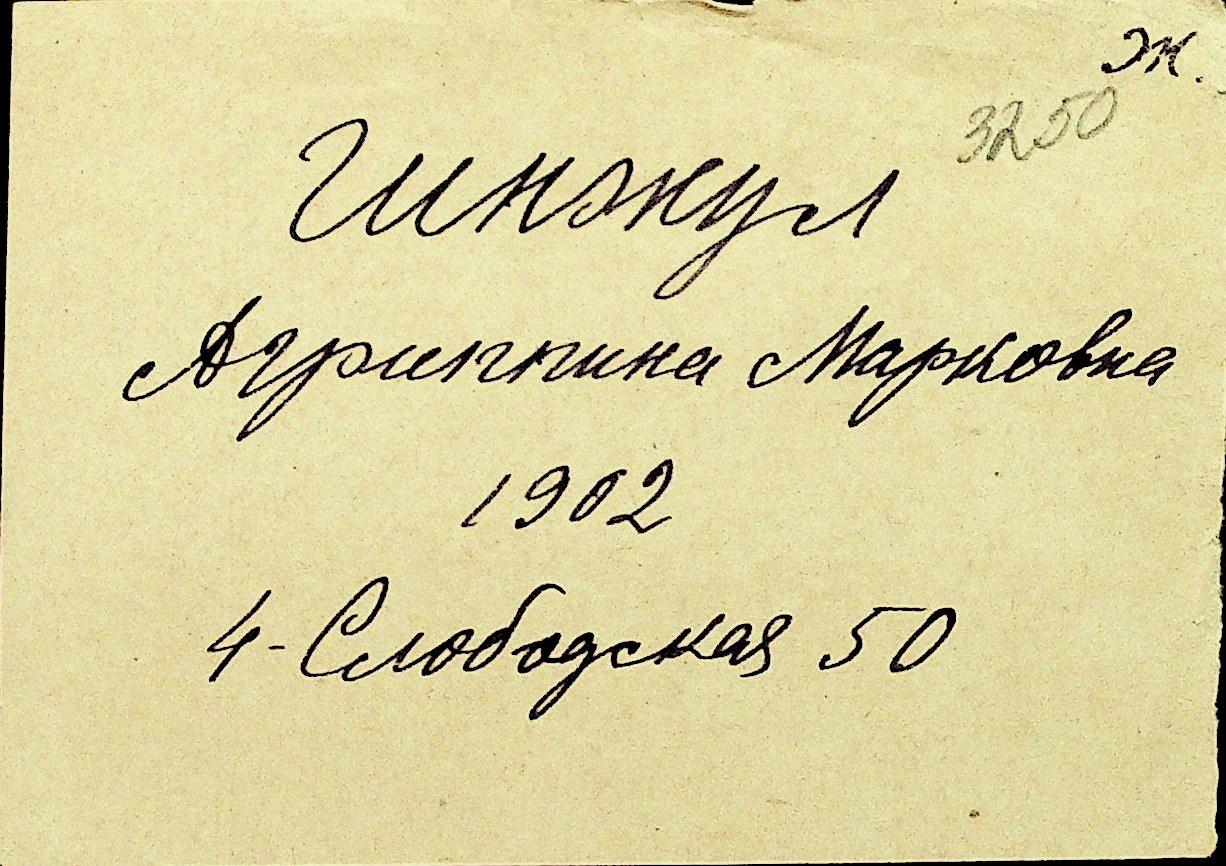 Ж.
3250
Гинжул
Агриппина Марковна
1902
4-Слободская 50